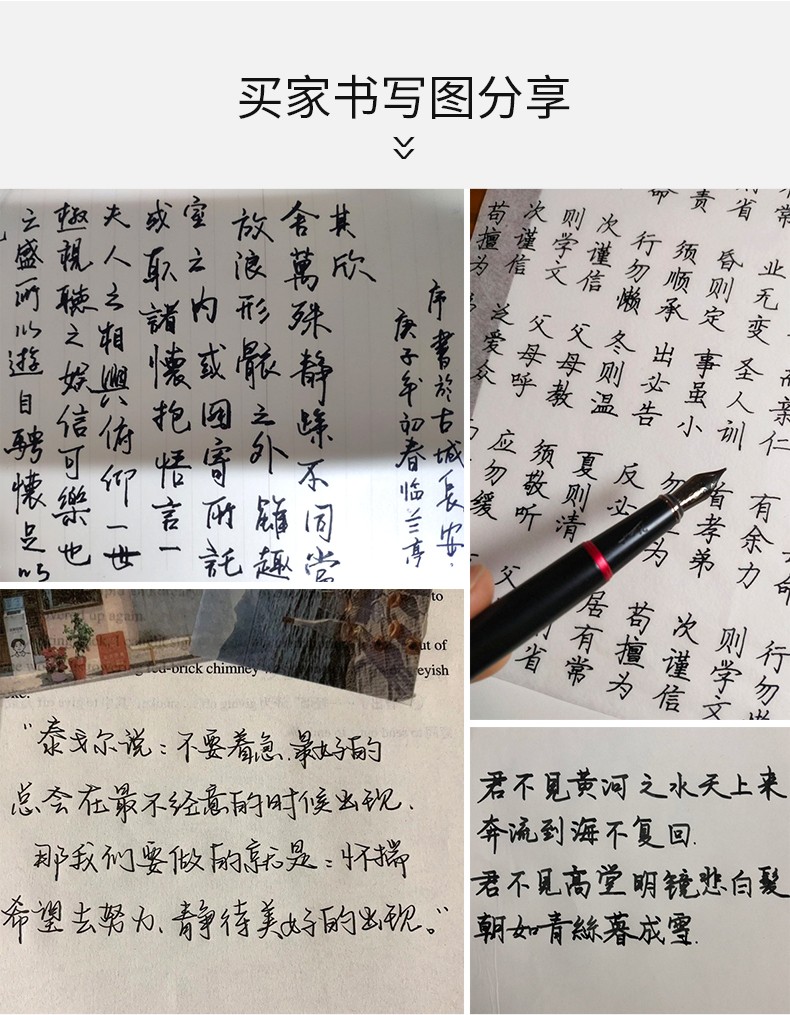 买家书写图分享
之盛所以遊自騁懷足以
極視聽之娛信可樂也
夫人之相與俯仰一世
或取諸懷抱悟言一
室之内或因寄所託
放浪形骸之外雖趣
舍萬殊静躁不同當
其欣
庚子年初春临兰亭
序書於古城長安.
苟擅为 泛爱众 应勿缓 父
次谨信 父母呼 须敬听 省
则学文 父母教 夏则清 居有常
次谨信 冬则温 反必 苟擅为
命 行勿懒 出必告 勿 为 次谨信
责 须顺承 事虽小 首孝弟 则学文
省 昏则定 圣人训 有余力 行勿
常 业无变 而亲仁 命
to
up again.
out of
red-brick chimney
eyish
“泰戈尔说：不要着急.最好的
总会在最不经意的时候出现.
那我们要做的就是：怀揣
希望去努力、静待美好的出现。”
君不见黄河之水天上来
奔流到海不复回.
君不见高堂明镜悲白髮
朝如青絲暮成雪.